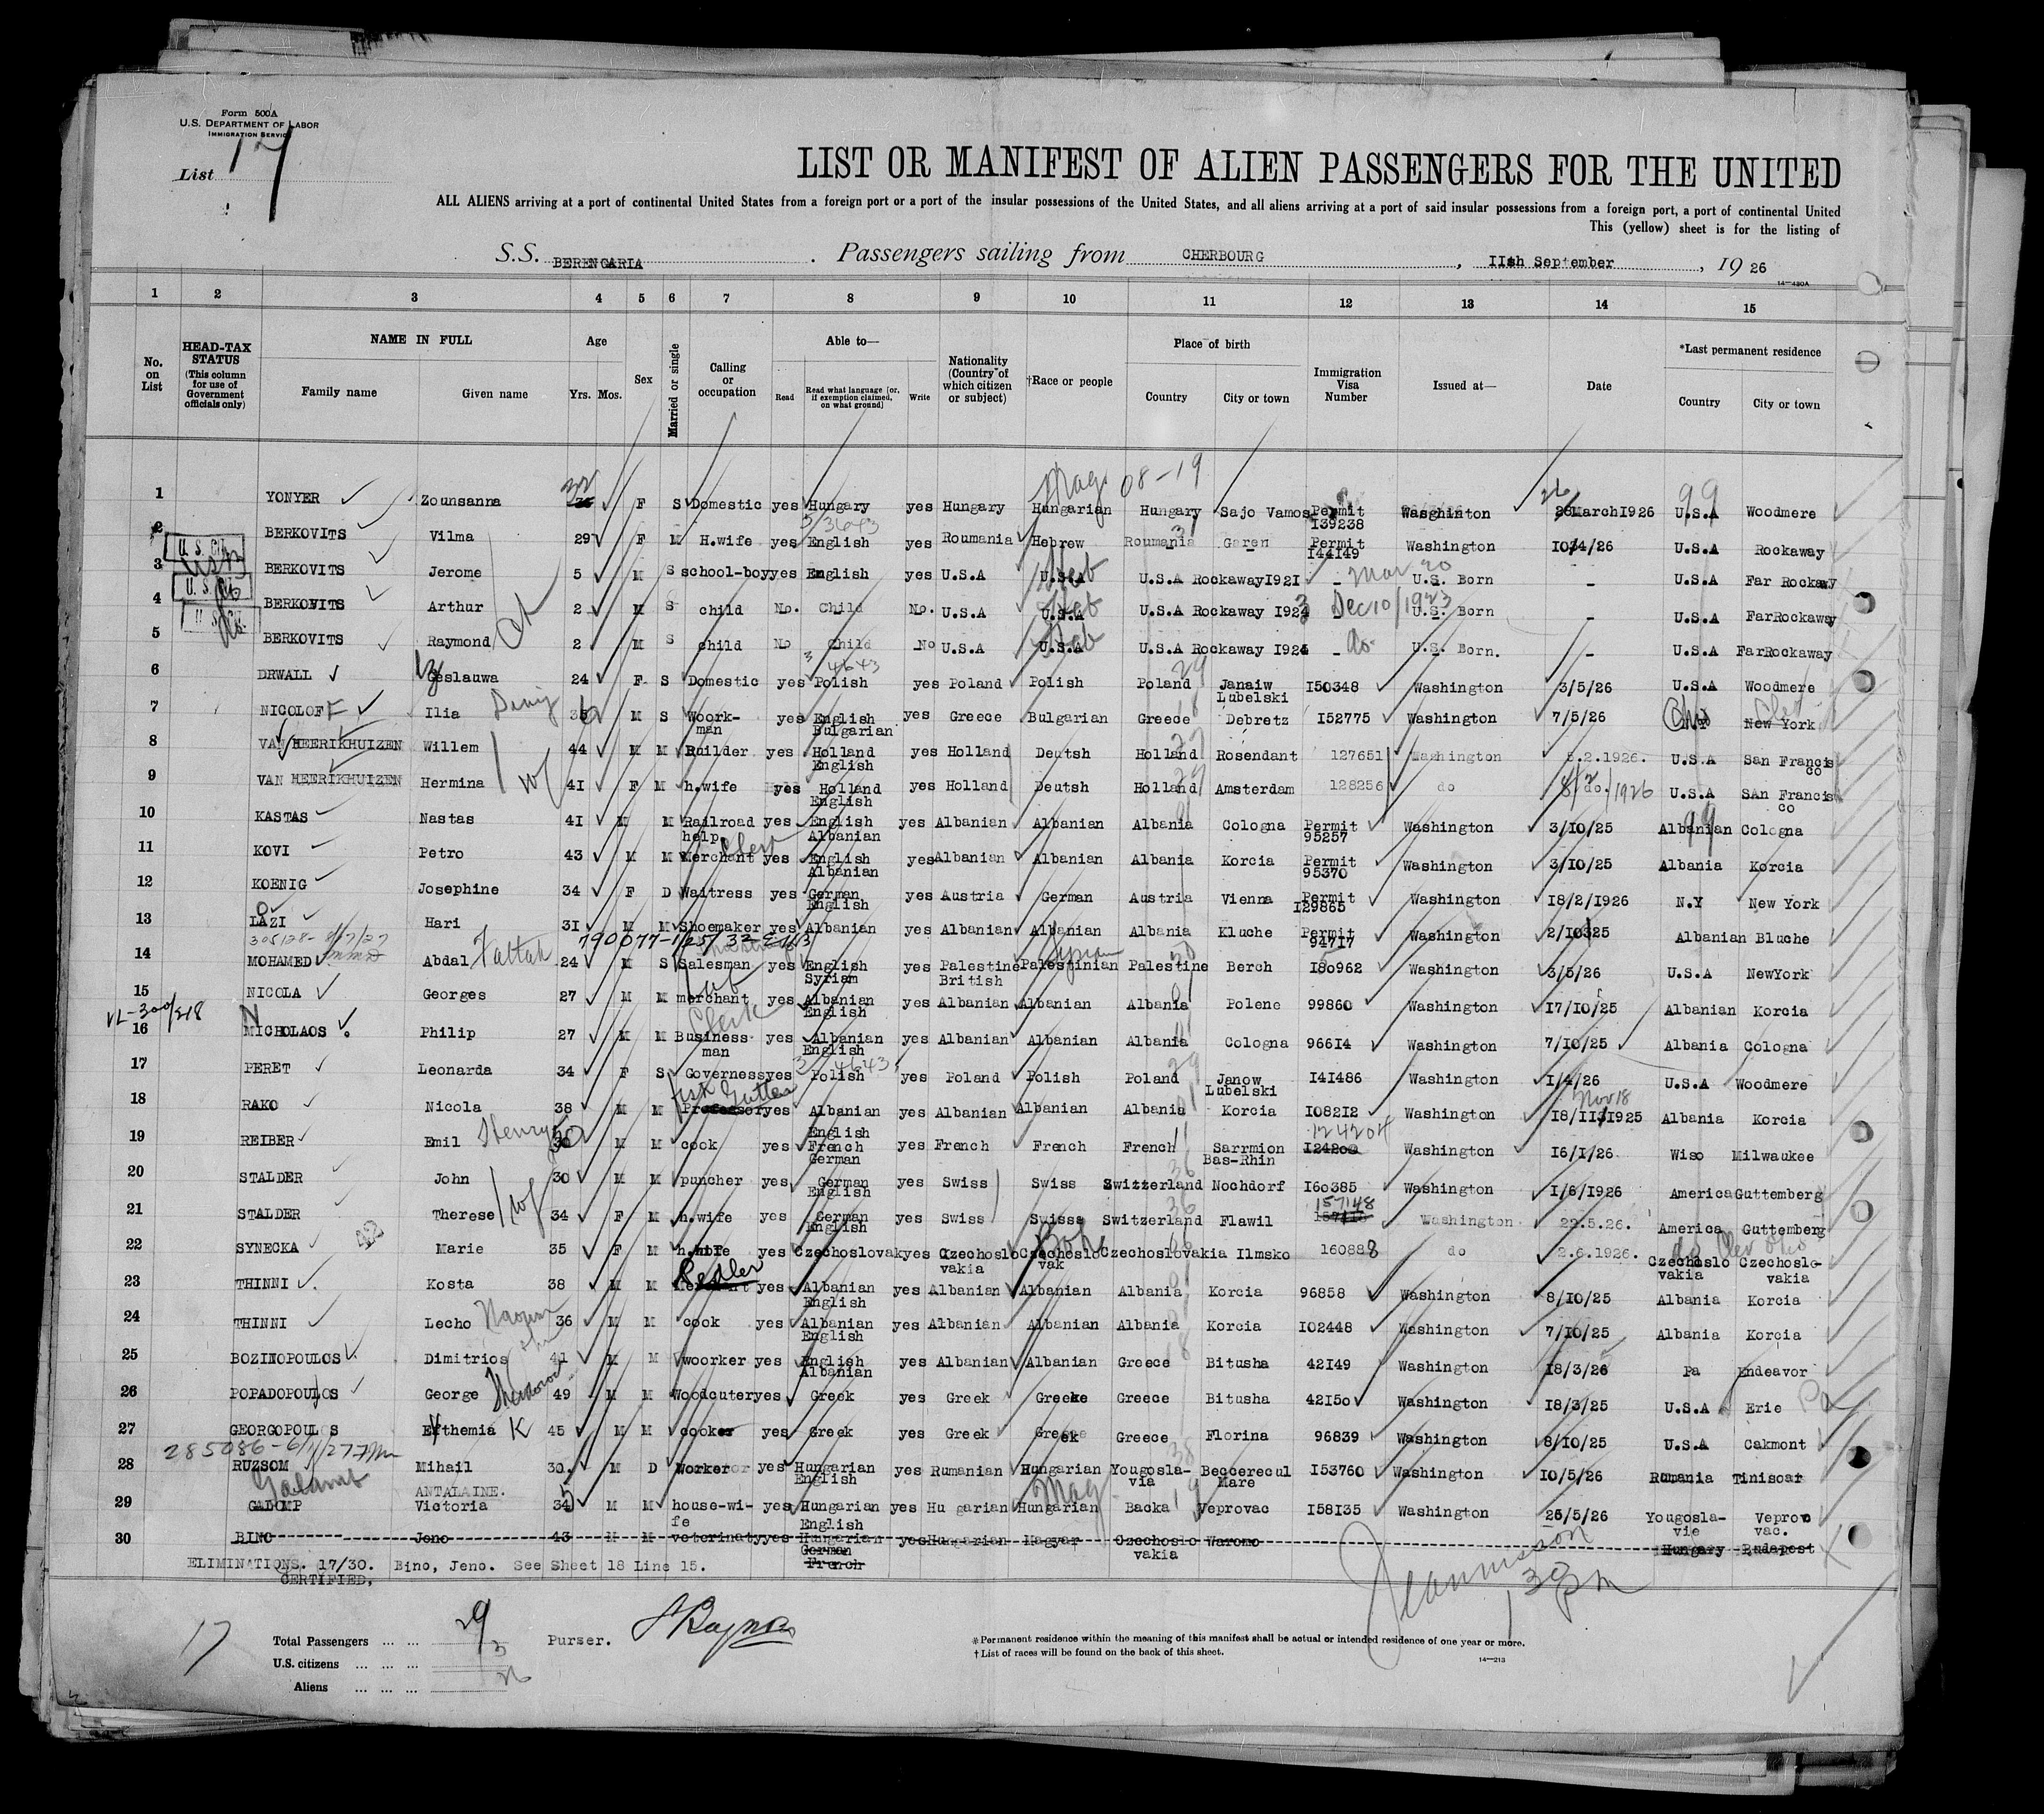 Form 500A
U.S. DEPARTMENT OF LABOR
IMMIGRATION SERVICE
List 17
LIST OR MANIFEST OF ALIEN PASSENGERS FOR THE UNITED
ALL ALIENS arriving at a port of continental United States from a foreign port or a port of the insular possessions of the United States, and all aliens arriving at a port of said insular possessions from a foreign port, a port of continental United
This (yellow) sheet is for the listing of
S.S. BERENGARIA . Passengers sailing from CHERBOURG , IIth September , 19 26
14-430A
1 2 3 4 5 6 7 8 9 10 11 12 13 14 15
No. on List
HEAD-TAX STATUS (This column for use of Government officials only)
NAME IN FULL
Family name Given name
Age Yrs. Mos.
Sex
Married or single
Calling or occupation
Able to— Read Read what language (or, if exemption claimed, on what ground) Write
Nationality (Country of which citizen or subject)
†Race or people
Place of birth Country City or town
Immigration Visa Number
Issued at—
Date
*Last permanent residence Country City or town
Mag 08-19
1 YONYER Zounsanna 32 F S Domestic yes Hungary yes Hungary Hungarian Hungary Sajo Vamos Permit I39238 Washinton 26 March I926 U.S.A Woodmere
2 BERKOVITS Vilma 29 F M H.wife yes English yes Roumania Hebrew Roumania Geren Permit I44I49 Washington I0/4/26 U.S.A Rockaway
U.S. Cit.
3 BERKOVITS Jerome 5 M S school-boy yes English yes U.S.A U.S.A Heb U.S.A Rockaway I92I - Mar 20 U.S. Born - U.S.A Far Rockaway
U.S. Cit.
4 BERKOVITS Arthur 2 M S child No. Child No. U.S.A U.S.A Heb U.S.A Rockaway I923 Dec 10/1923 U.S. Born - U.S.A FarRockaway
U.S. Cit.
5 BERKOVITS Raymond 2 M S child No Child No U.S.A U.S.A Heb U.S.A Rockaway I924 - do U.S. Born. - U.S.A FarRockaway
6 DRWALL Geslauwa 24 F S Domestic yes Polish yes Poland Polish Poland Janaiw Lubelski I50348 Washington 3/5/26 U.S.A Woodmere
7 NICOLOFF Ilia M S Woork-man yes English Bulgarian yes Greece Bulgarian Greece Debretz I52775 Washington 7/5/26 New York
8 VAN HEERIKHUIZEN Willem 44 M M Builder yes Holland English yes Holland Deutsh Holland Rosendant 127651 Washington 5.2.1926. U.S.A San Francisco
9 VAN HEERIKHUIZEN Hermina wf 4I F M h.wife yes Holland English yes Holland Deutsh Holland Amsterdam 128256 do 8/2/1926 U.S.A SAn Francisco
10 KASTAS Nastas 4I M M Railroad help yes English Albanian yes Albanian Albanian Albania Cologna Permit 95257 Washington 3/10/25 Albanian Cologna
11 KOVI Petro 43 M M Merchant yes English Albanian yes Albanian Albanian Albania Korcia Permit 95370 Washington 3/10/25 Albania Korcia
12 KOENIG Josephine 34 F D Waitress yes German English yes Austria German Austria Vienna Permit I29865 Washington I8/2/I926 N.Y New York
13 LAZI Hari 3I M M Shoemaker yes Albanian yes Albanian Albanian Albania Kluche Permit 947I7 Washington 2/10325 Albanian Bluche
14 MOHAMED Abdal Fattah 24 M S Salesman yes English Syrian yes Palestine British Palestinian Syrian Palestine Berch I80962 Washington 3/5/26 U.S.A NewYork
15 NICOLA Georges 27 M M merchant yes Albanian English yes Albanian Albanian Albania Polene 99860 Washington I7/10/25 Albanian Korcia
16 NICHOLAOS Philip 27 M M Business man Clerk yes Albanian English yes Albanian Albanian Albania Cologna 966I4 Washington 7/10/25 Albania Cologna
17 PERET Leonarda 34 F S Governess yes Polish yes Poland Polish Poland Janow Lubelski I4I486 Washington I/4/26 U.S.A Woodmere
18 RAKO Nicola 38 M M Professor yes Albanian English yes Albanian Albanian Albania Korcia I082I2 Washington I8/II/I925 Nov 18 Albania Korcia
19 REIBER Emil Henry 30 M M cook yes French German yes French French French Sarrmion Bas-Rhin 124204 Washington I6/I/26 Wiso Milwaukee
20 STALDER John 30 M M puncher yes German English yes Swiss Swiss Switzerland Nochdorf I60385 Washington I/6/I926 America Guttemberg
21 STALDER Therese wf 34 F M h.wife yes German English yes Swiss Swiss Switzerland Flawil 157148 Washington 22.5.26. America Guttemberg
22 SYNECKA Marie 35 F M h.wife yes Czechoslovak yes Czechoslo vakia Czechoslo vak Boh Czechoslovakia Ilmsko 160888 do 2.6.1926. Czechoslo vakia Czechoslo-vakia
23 THINNI Kosta 38 M M Pedler yes Albanian English yes Albanian Albanian Albania Korcia 96858 Washington 8/10/25 Albania Korcia
24 THINNI Lecho Naoum 36 M M cook yes Albanian English yes Albanian Albanian Albania Korcia I02448 Washington 7/10/25 Albania Korcia
25 BOZINOPOULOS Dimitrios 41 M M woorker yes English Albanian yes Albanian Albanian Greece Bitusha 42I49 Washington I8/3/26 Pa Endeavor
26 POPADOPOULOS George 49 M M Woodcuter yes Greek yes Greek Greeke Greece Bitusha 42I50 Washington I8/3/25 U.S.A Erie Pa
27 GEORGOPOULOS Efthemia K 45 M M cooker yes Greek yes Greek Greek Greece Florina 96839 Washington 8/10/25 U.S.A Oakmont
28 RUZSOM Mihail 30. M D Worker yes Hungarian English yes Rumanian Hungarian Yougosla-via Beccerecul Mare I53760 Washington I0/5/26 Rumania Tinisoar
Galamb ANTALAINE.
29 GALOMP Victoria 34 M M house-wi-fe yes Hungarian English yes Hu garian Hungarian Mag Backa Veprovac I58I35 Washington 25/5/26 Yougosla-vie Veprovo vac.
30 BINO Jeno 43 M M veterinaty yes Hungarian German French yes Hungarian Magyar Czechoslo vakia Waromo Hungary Budapest
ELIMINATIONS. 17/30. Bino, Jeno. See Sheet 18 Line 15.
CERTIFIED,
17
Total Passengers ... ... ... 29
U.S. citizens ... ... ... 3
Aliens ... ... ... 26
Purser.
*Permanent residence within the meaning of this manifest shall be actual or intended residence of one year or more.
†List of races will be found on the back of this sheet.
14-213